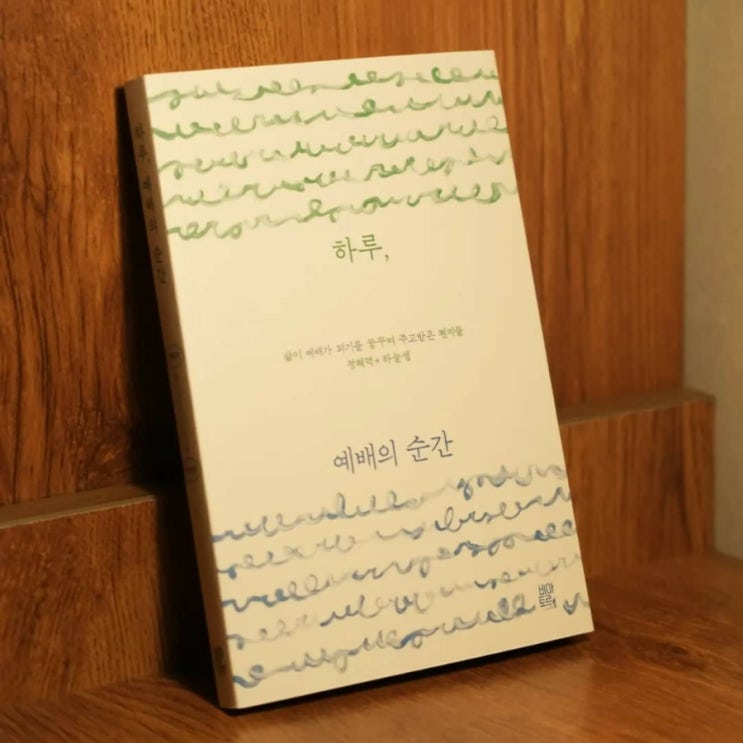 하루,
삶이 예배가 되기를 꿈꾸며 주고받은 편지들
정혜덕 + 하늘샘
예배의 순간
비아
토르
하루, 예배의 순간